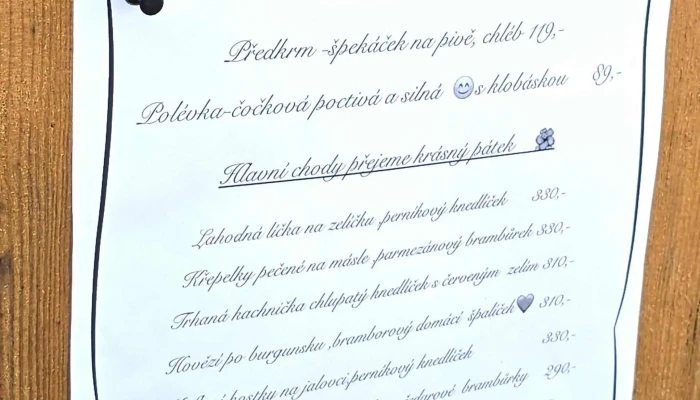 Předkrm -špekáček na pivě, chléb 119,-
Polévka-čočková poctivá a silná 😊s klobáskou 89,-
Hlavní chody přejeme krásný pátek
Lahodná líčka na zelíčku ,perníkový knedlíček 330,-
Křepelky pečené na másle ,parmezánový brambůrek 330,-
Trhaná kachnička chlupatý knedlíček s červeným zelím 310,-
Hovězí po burgunsku ,bramborový domácí špalíček🖤 310,-
kostky na jalovci,perníkový knedlíček 330,-
brambůrky 290,-